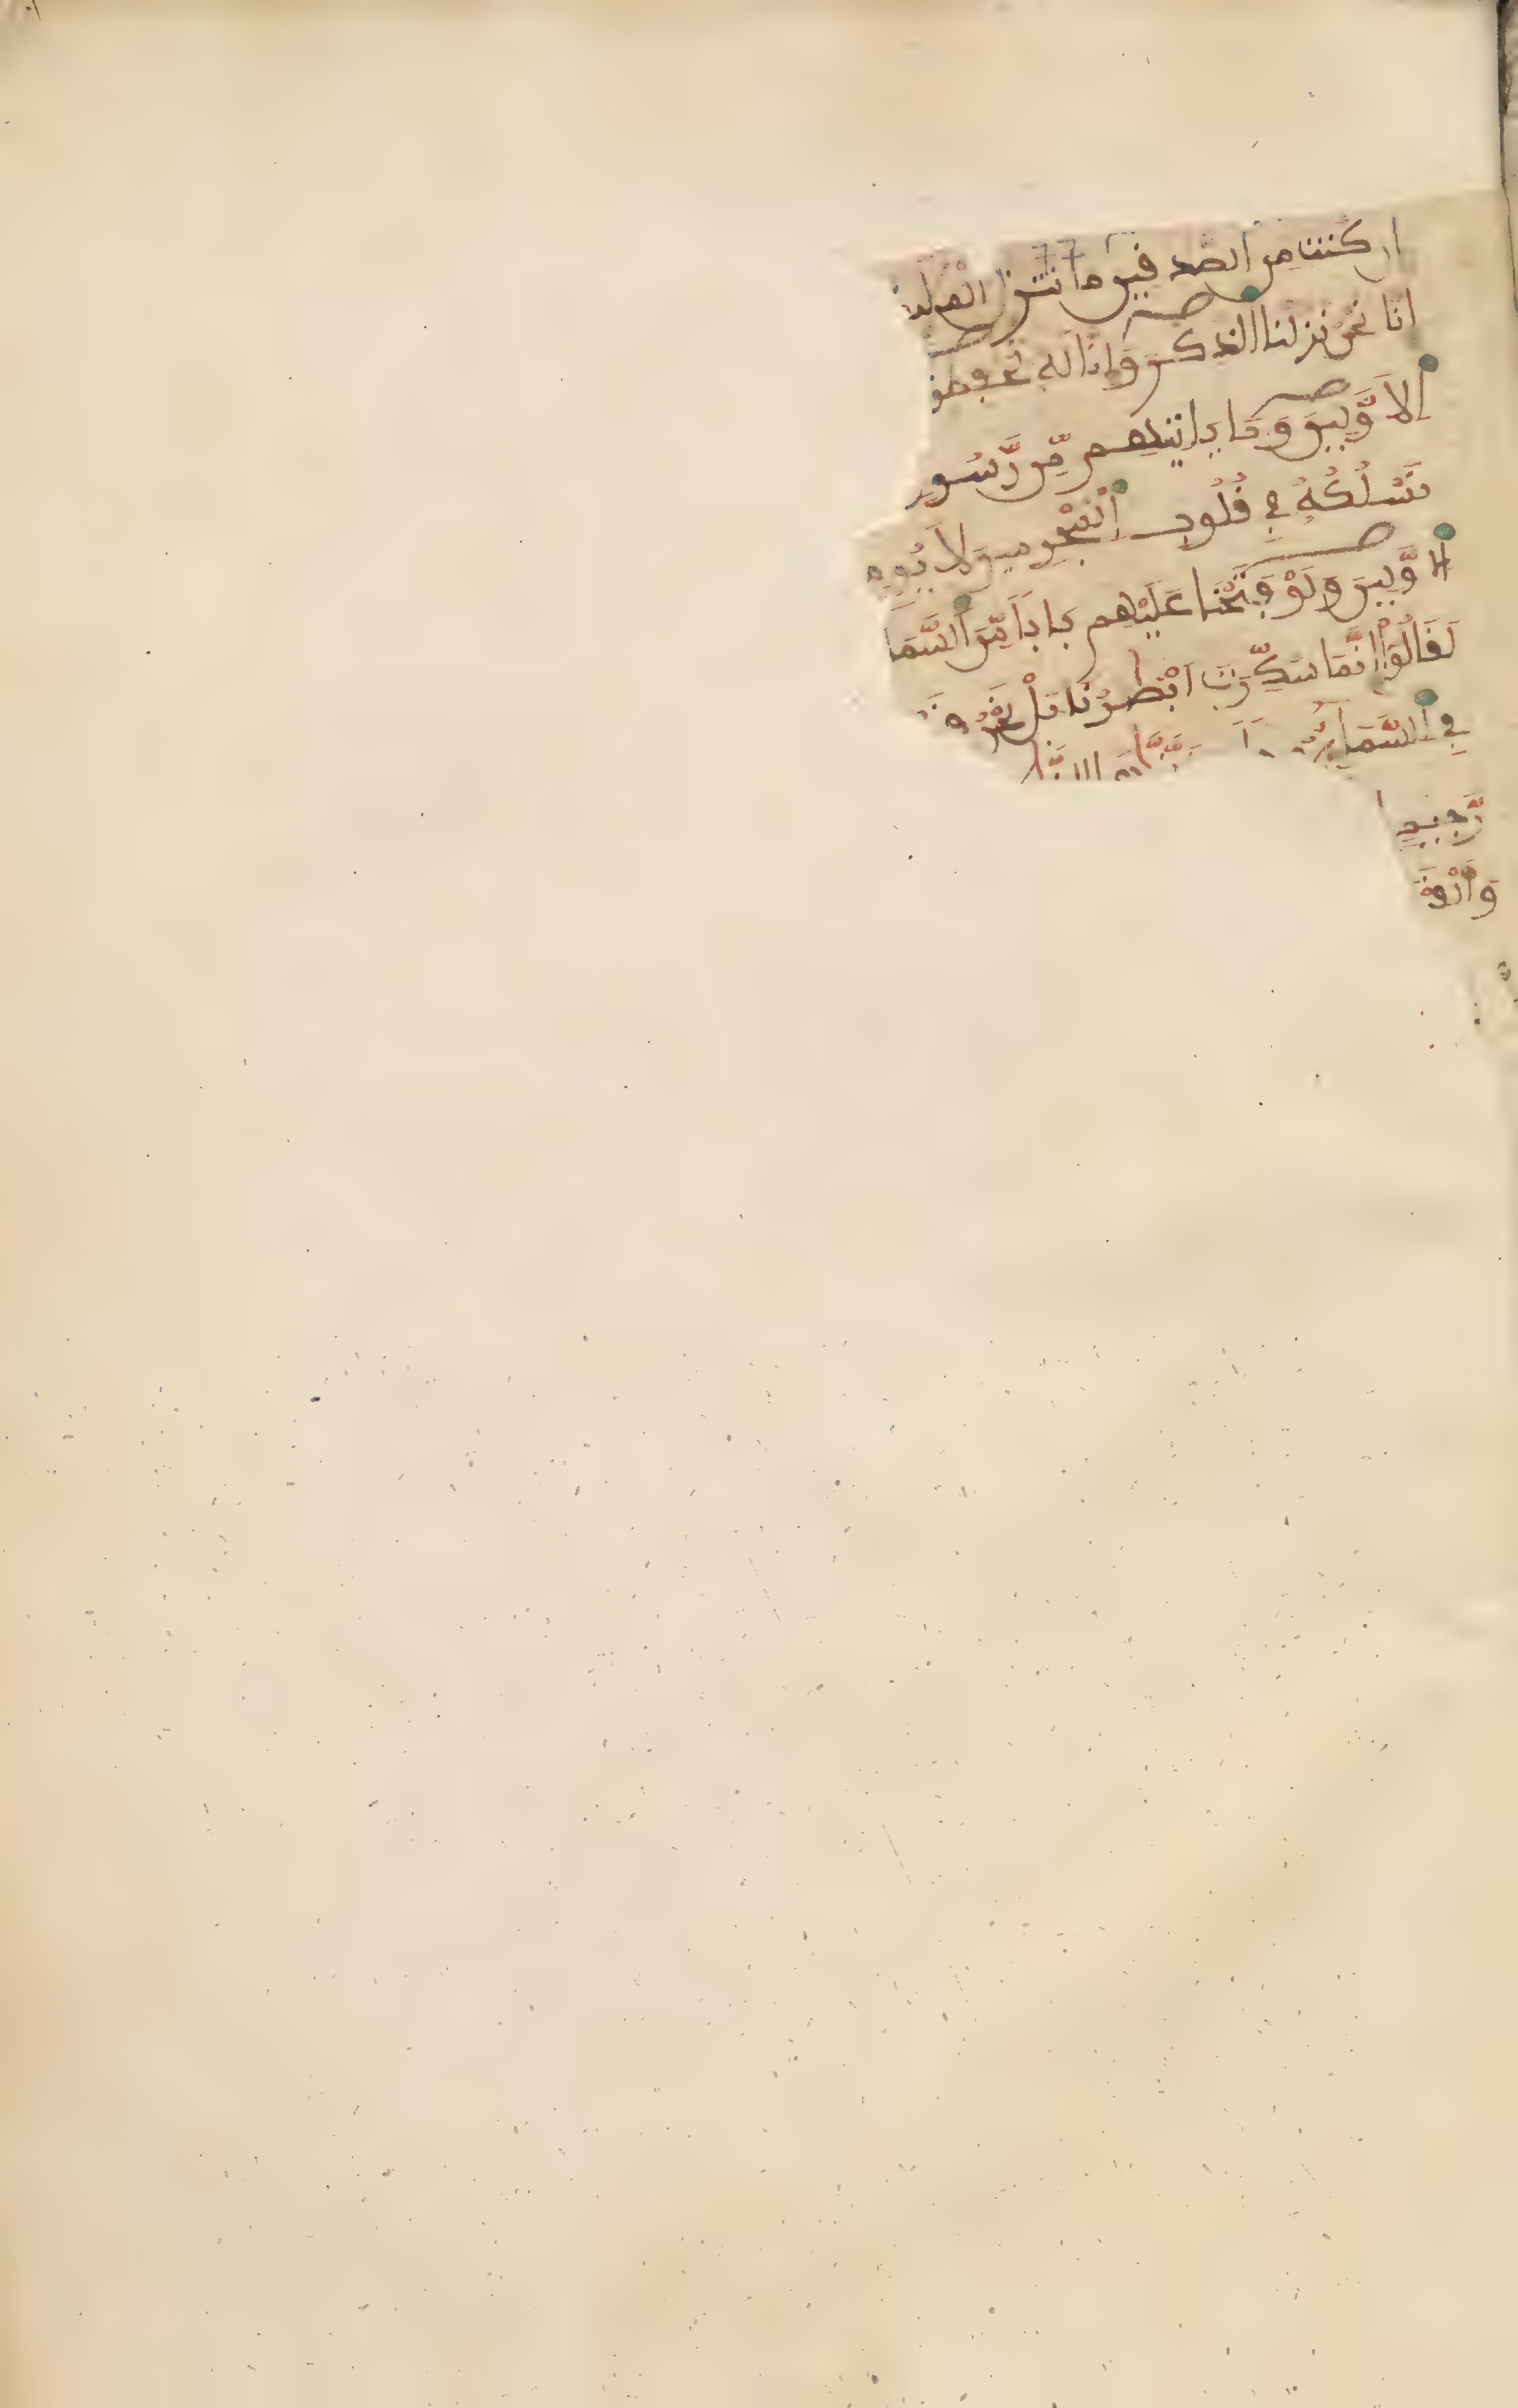 ان كنت من الصدفين ما تنزل الملـ
انا نحن نزلنا الذكر وانا له لحفظو
اَلاَوَّلِينَ وَمَا يَاتِيهِم مِّن رَّسُولٍ
نَسْلُكُهُ فِي قُلُوبِ اَلْمُجْرِمِينَ لاَ يُومِ
اَلاَوَّلِينَ وَلَوْ فَتَحْنَا عَلَيْهِم بَاباً مِّنَ اَلسَّمَا
لَقَالُوٓاْ إِنَّمَا سُكِّرَتَ اَبْصَٰرُنَا بَلْ نَحْنُ قَو
فِي اِلسَّمَاءِ بُرُوجاً وَزَيَّنَّٰهَا لِلنَّٰ
رَّجِيمٍ
وَأَلْقَ